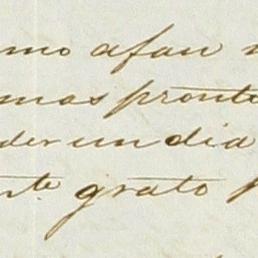 mo afan
mas pronto
der un dia
nte. grato